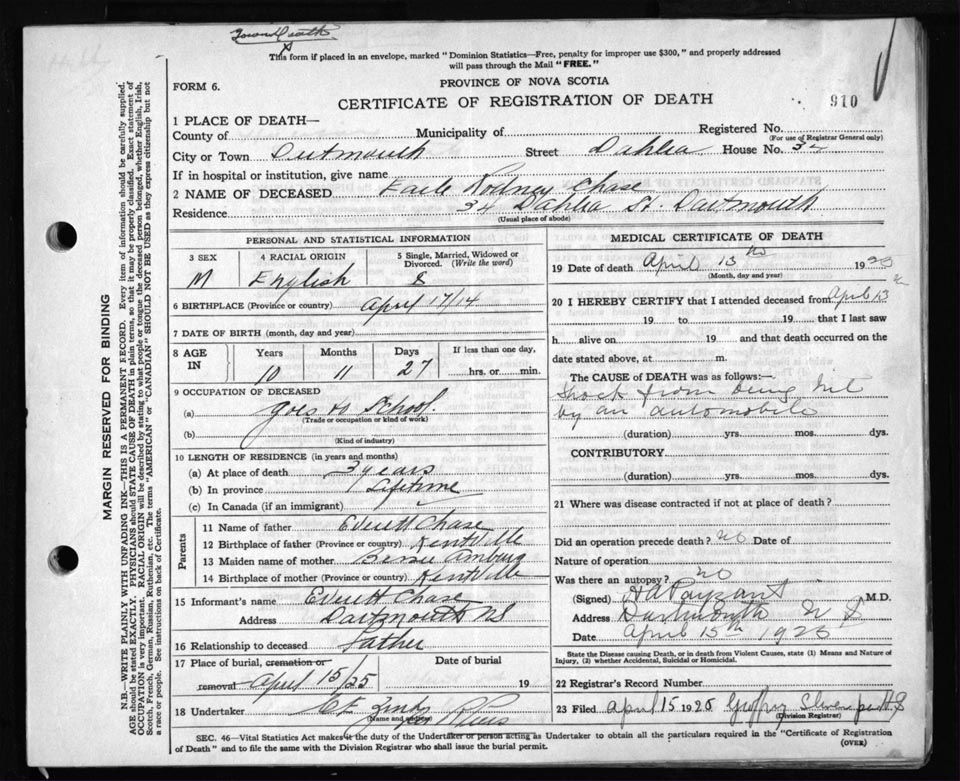 Town Death
This form if placed in an envelope, marked "Dominion Statistics—Free, penalty for improper use $300," and properly addressed
will pass through the Mail "FREE."
FORM 6.
PROVINCE OF NOVA SCOTIA
CERTIFICATE OF REGISTRATION OF DEATH
910
1 PLACE OF DEATH—
County of Municipality of Registered No.
(For use of Registrar General only)
City or Town Dartmouth Street Dahlia House No. 34
If in hospital or institution, give name
2 NAME OF DECEASED Earle Rodney Chase
Residence 34 Dahlia St. Dartmouth
(Usual place of abode)
MARGIN RESERVED FOR BINDING
N.B.—WRITE PLAINLY WITH UNFADING INK—THIS IS A PERMANENT RECORD. Every item of information should be carefully supplied.
AGE should be stated EXACTLY. PHYSICIANS should STATE CAUSE OF DEATH in plain terms, so that it may be properly classified. Exact statement of
OCCUPATION is very important. RACIAL ORIGIN will be described by stating to what people or tongue the deceased person belonged, whether English, Irish,
Scotch, French, German, Russian, Ruthenian, etc. The terms "AMERICAN" or "CANADIAN" SHOULD NOT BE USED as they express citizenship but not
a race or people. See instructions on back of Certificate.
PERSONAL AND STATISTICAL INFORMATION
3 SEX
M
4 RACIAL ORIGIN
English
5 Single, Married, Widowed or
Divorced. (Write the word)
S
6 BIRTHPLACE (Province or country) April 17/14
7 DATE OF BIRTH (month, day and year)
8 AGE
IN
Years Months Days If less than one day,
10 11 27 hrs. or min.
9 OCCUPATION OF DECEASED
(a) goes to School.
(Trade or occupation or kind of work)
(b)
(Kind of industry)
10 LENGTH OF RESIDENCE (in years and months)
(a) At place of death 3 years
(b) In province Lifetime
(c) In Canada (if an immigrant)
Parents
11 Name of father Everett Chase
12 Birthplace of father (Province or country) Kentville
13 Maiden name of mother
14 Birthplace of mother (Province or country) Kentville
15 Informant's name Everett Chase
Address Dartmouth NS
16 Relationship to deceased Father
17 Place of burial, cremation or Date of burial
removal April 15/25 19
18 Undertaker
(Name and address)
MEDICAL CERTIFICATE OF DEATH
19 Date of death April 13 1925
(Month, day and year)
20 I HEREBY CERTIFY that I attended deceased from April 13
19 to 19 that I last saw
h alive on 19 and that death occurred on the
date stated above, at m.
The CAUSE OF DEATH was as follows:—
Shock from being hit
by an automobile
(duration) yrs. mos. dys.
CONTRIBUTORY
(duration) yrs. mos. dys.
21 Where was disease contracted if not at place of death?
Did an operation precede death? no Date of
Nature of operation
Was there an autopsy? no
(Signed) H A Payzant M.D.
Address Dartmouth N S
Date April 15th 1925
State the Disease causing Death, or in death from Violent Causes, state (1) Means and Nature of
Injury, (2) whether Accidental, Suicidal or Homicidal.
22 Registrar's Record Number
23 Filed April 15 1925
(Division Registrar)
SEC. 46—Vital Statistics Act makes it the duty of the Undertaker or person acting as Undertaker to obtain all the particulars required in the "Certificate of Registration
of Death" and to file the same with the Division Registrar who shall issue the burial permit.
(OVER)